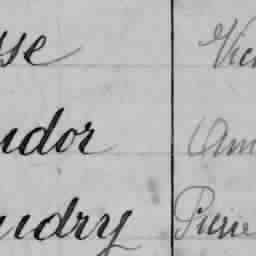 sse Vic
udor Am
udry Pierre